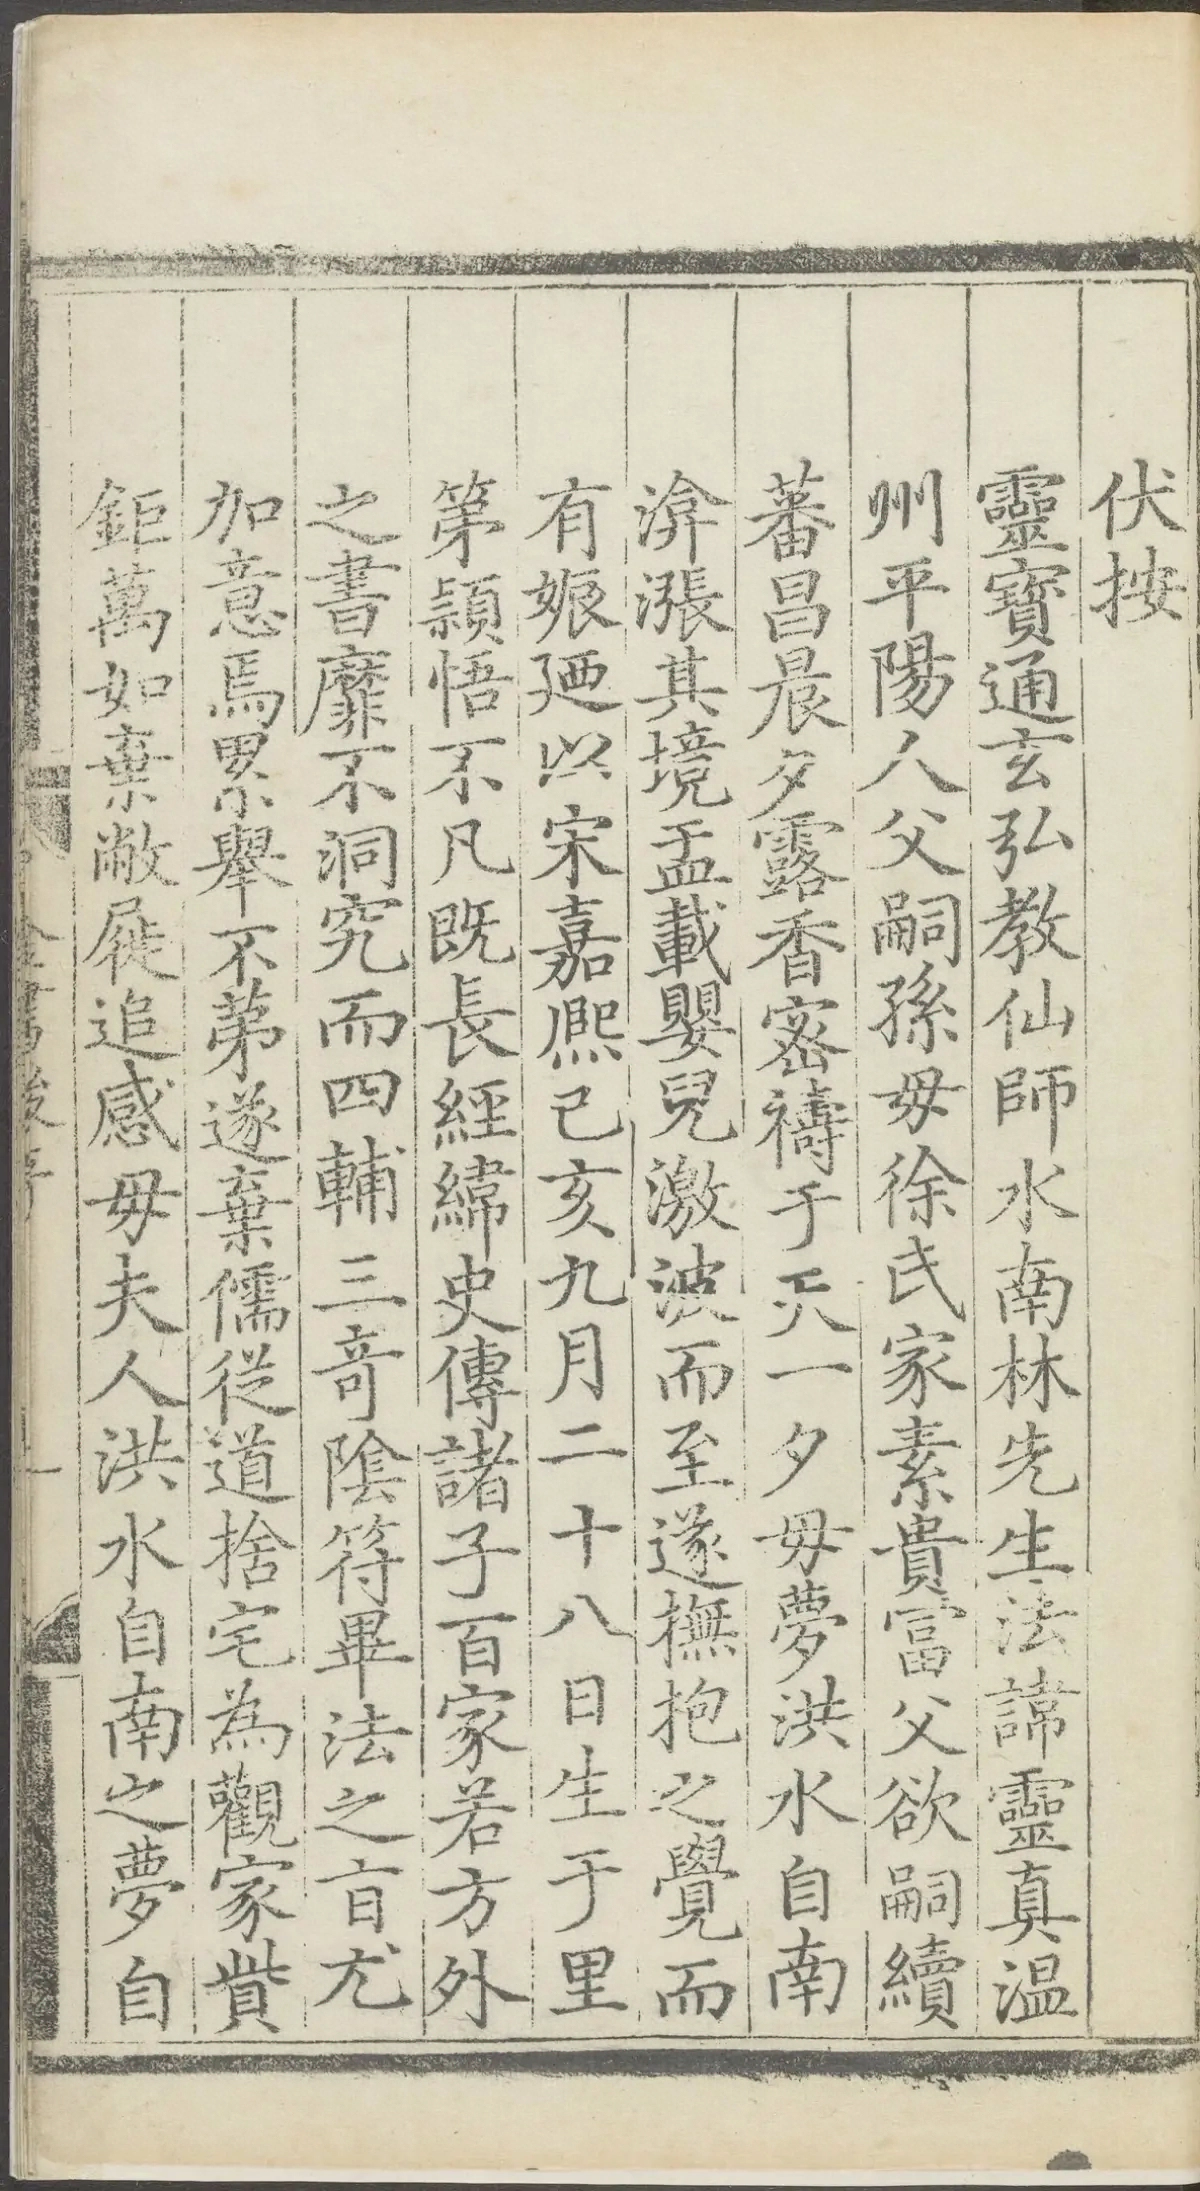 伏按
靈寶通玄弘教仙師水南林先生法諱靈真温
州平陽人父嗣孫毋徐氏家素貴富父欲嗣續
蕃昌晨夕露香宻禱于天一夕毋夢洪水自南
渰漲其境盂載嬰兒激波而至遂撫抱之覺而
有娠廼以宋嘉熈己亥九月二十八日生于里
第頴悟不凡既長經緯史傳諸子百家若方外
之書靡不洞究而四輔三竒隂符畢法之旨尤
加意焉累舉不第遂棄儒従道捨宅為觀家貲
鉅萬如棄敝屣追感毋夫人洪水自南之夢自